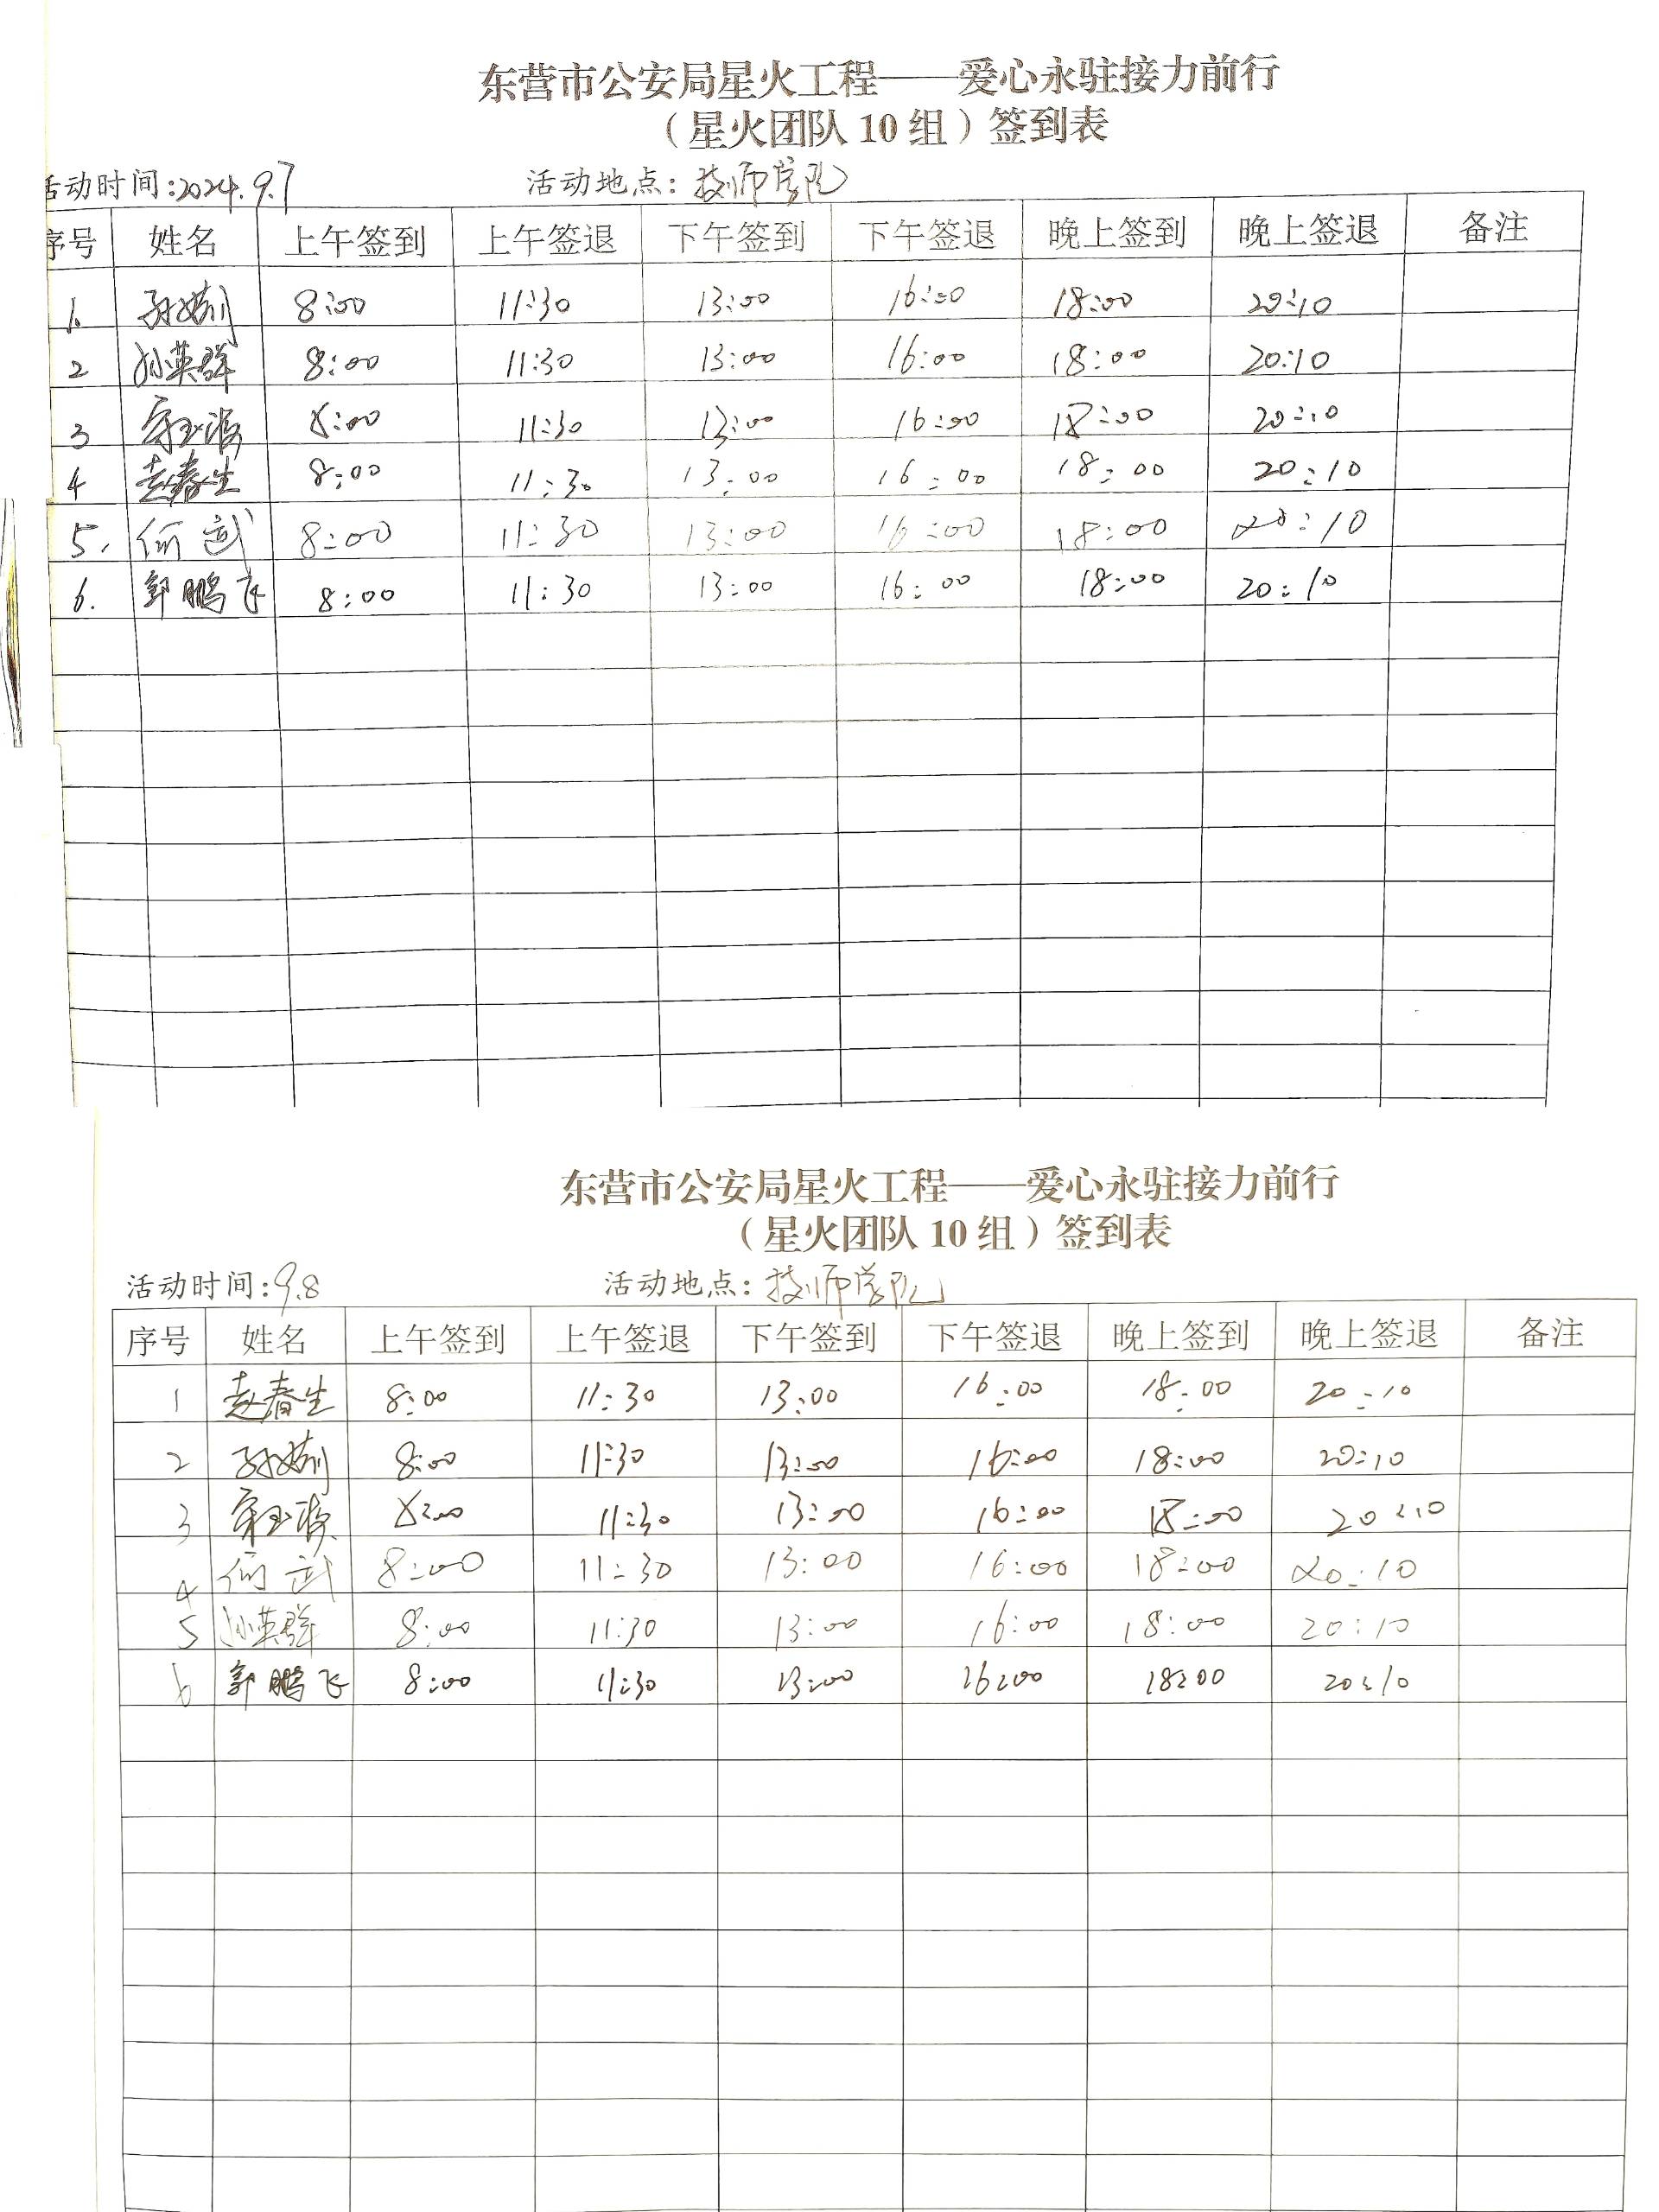 东营市公安局星火工程——爱心永驻接力前行
（星火团队 10 组）签到表
活动时间:2024.9.7 活动地点：技师学院
序号 姓名 上午签到 上午签退 下午签到 下午签退 晚上签到 晚上签退 备注
1. 8:00 11:30 13:00 16:00 18:00 20:10
2 孙英群 8:00 11:30 13:00 16:00 18:00 20:10
3 8:00 11:30 13:00 16:00 18:00 20:10
4 赵春生 8:00 11:30 13:00 16:00 18:00 20:10
5. 何武 8:00 11:30 13:00 16:00 18:00 20:10
6. 郭鹏飞 8:00 11:30 13:00 16:00 18:00 20:10
东营市公安局星火工程——爱心永驻接力前行
（星火团队 10 组）签到表
活动时间:9.8 活动地点：技师学院
序号 姓名 上午签到 上午签退 下午签到 下午签退 晚上签到 晚上签退 备注
1 赵春生 8:00 11:30 13:00 16:00 18:00 20:10
2 8:00 11:30 13:00 16:00 18:00 20:10
3 8:00 11:30 13:00 16:00 18:00 20:10
4 何武 8:00 11:30 13:00 16:00 18:00 20:10
5 孙英群 8:00 11:30 13:00 16:00 18:00 20:10
6 郭鹏飞 8:00 11:30 13:00 16:00 18:00 20:10